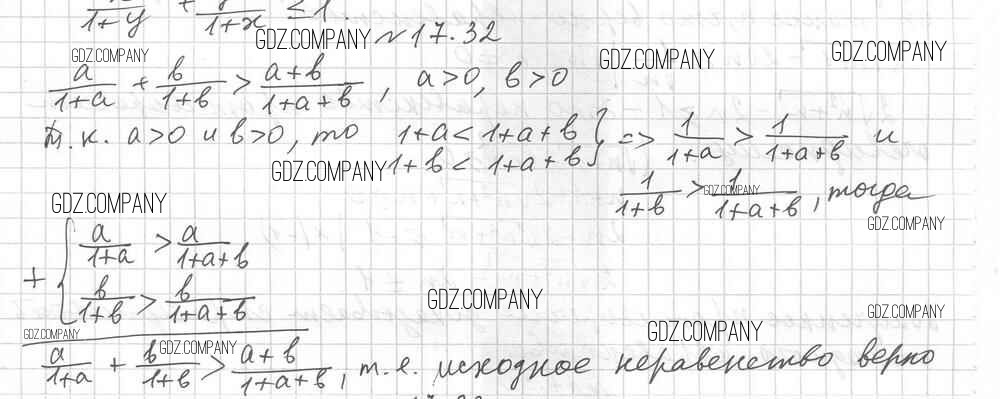 1+y 1+x ≤ 1.
GDZ.COMPANY №17.32
GDZ.COMPANY GDZ.COMPANY GDZ.COMPANY
a/(1+a) + b/(1+b) > (a+b)/(1+a+b), a>0, b>0
т.к. a>0 и b>0, то 1+a < 1+a+b } => 1/(1+a) > 1/(1+a+b) и
GDZ.COMPANY 1+b < 1+a+b
1/(1+b) > 1/(1+a+b), тогда
GDZ.COMPANY
GDZ.COMPANY GDZ.COMPANY
+ { a/(1+a) > a/(1+a+b)
b/(1+b) > b/(1+a+b)
GDZ.COMPANY GDZ.COMPANY
GDZ.COMPANY GDZ.COMPANY GDZ.COMPANY
a/(1+a) + b/(1+b) > (a+b)/(1+a+b), т.е. исходное неравенство верно